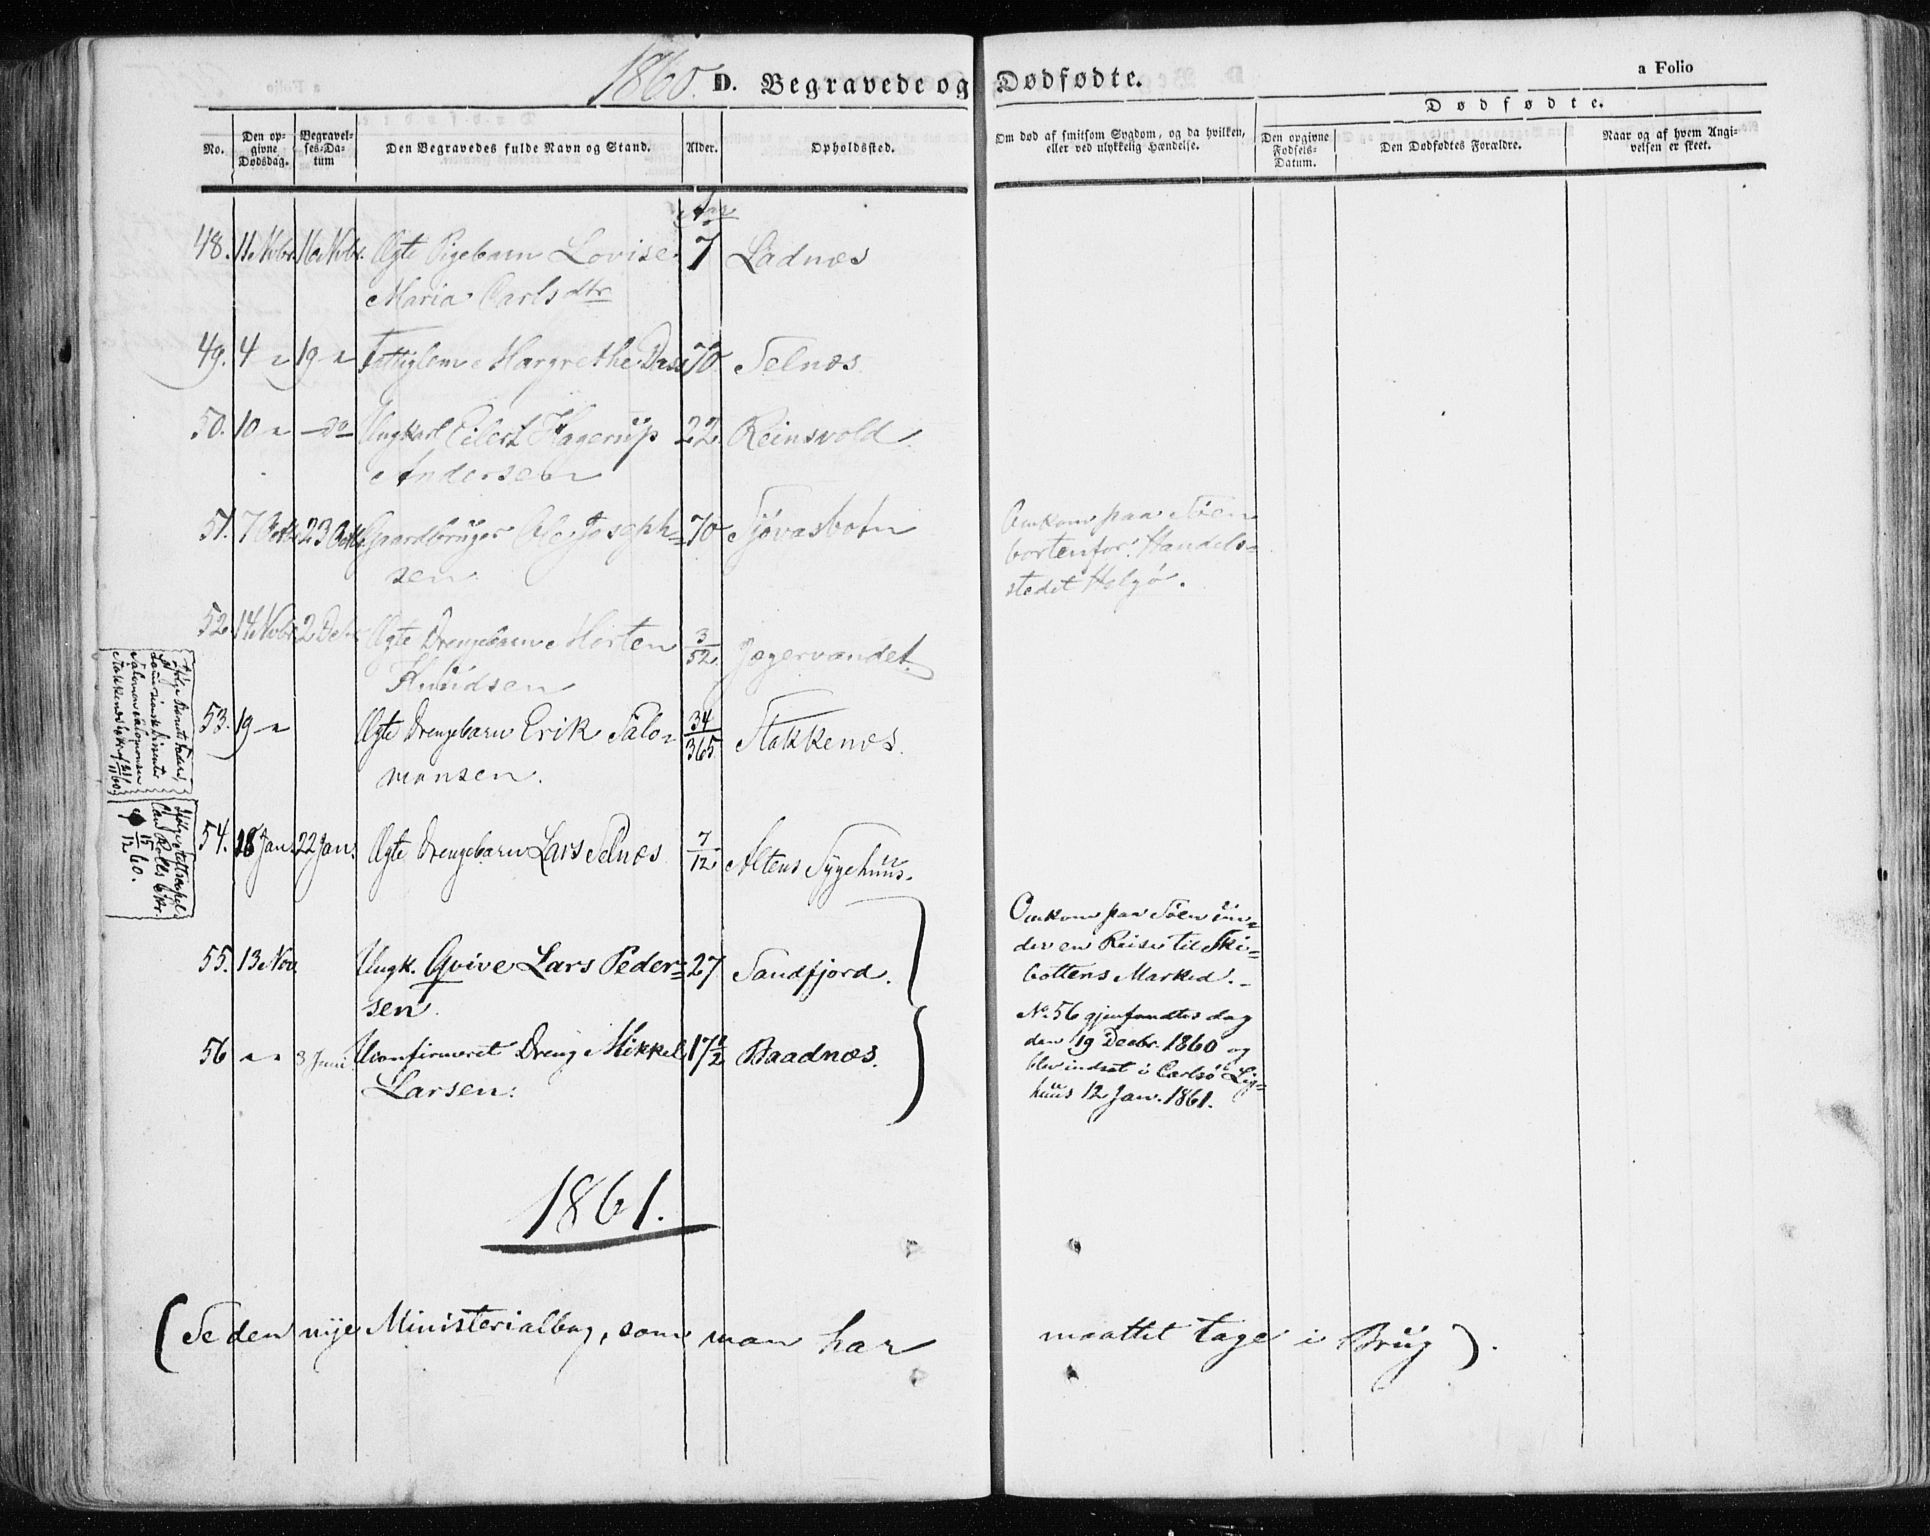 1860. D. Begravede og Dødfødte.
a Folio
Dødfødte.
No.
Den op-
givne
Dødsdag.
Begravel-
ses-Da-
tum
Den Begravedes fulde Navn og Stand.
Alder.
Opholdssted.
Om død af smitsom Sygdom, og da hvilken,
eller ved ulykkelig Hændelse.
Den opgivne
Fødsels-
Datum.
Den Dødfødtes Forældre.
Naar og af hvem Angi-
velsen er skeet.
Aar
48. 11 Nbr. 16 Nbr. Ægte Pigebarn Lovise 7 Ladnæs
Maria Carlsdtr
49. 4 " 19 " Fattiglem Margrethe Dass 70 Selnæs
50. 10 " do Ungkarl Eilert Hagerup 22 Reinsvold
Andersen
51. 7 Octb. 23 Octb. Gaardbruger Ole Joseph= 70 Sjøvasbotn
sen.
Omkom paa Søen
bortenfor Handels=
stedet Helgø.
52. 14 Novbr 2 Debr Ægte Drengebarn Morten 3/52 Jægervandet.
Knudsen
53. 19 " Ægte Drengebarn Erik Salo= 34/365 Stakkenæs.
monsen.
54. 18 Jan. 22 Jan. Ægte Drengebarn Lars Selnæs 7/12 Altens Sygehuus.
55. 13 Nov. Ungk. Qvive Lars Peder= 27 Sandfjord.
sen.
Omkom paa Søen un=
der en Reise til Ski=
bottens Marked.
56 " " 3 Juni Uconfirmeret Dreng Mikkel 17 1/2 Baadnæs.
Larsen.
No. 56 gjenfandtes dag
den 19 Decbr. 1860 og
blev indsat i Carlsø Lig=
huus 12 Jan. 1861.
1861.
(Se den nye Ministerialbog, som man har maattet tage i Brug).